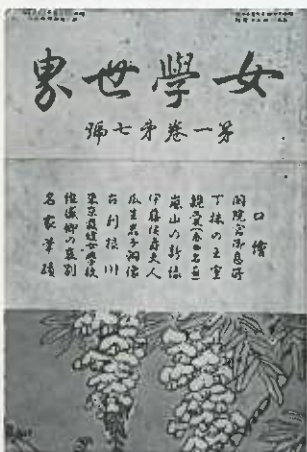 女學世界
第一卷第七號
口繪
閑院宮御息所
丁抹の王室
親愛(泰西名畫)
嵐山の新緑
伊藤侯爵夫人
瓜生岩子銅像
古利根川
東京裁縫女學校
維盛卿の哀別
名家筆蹟